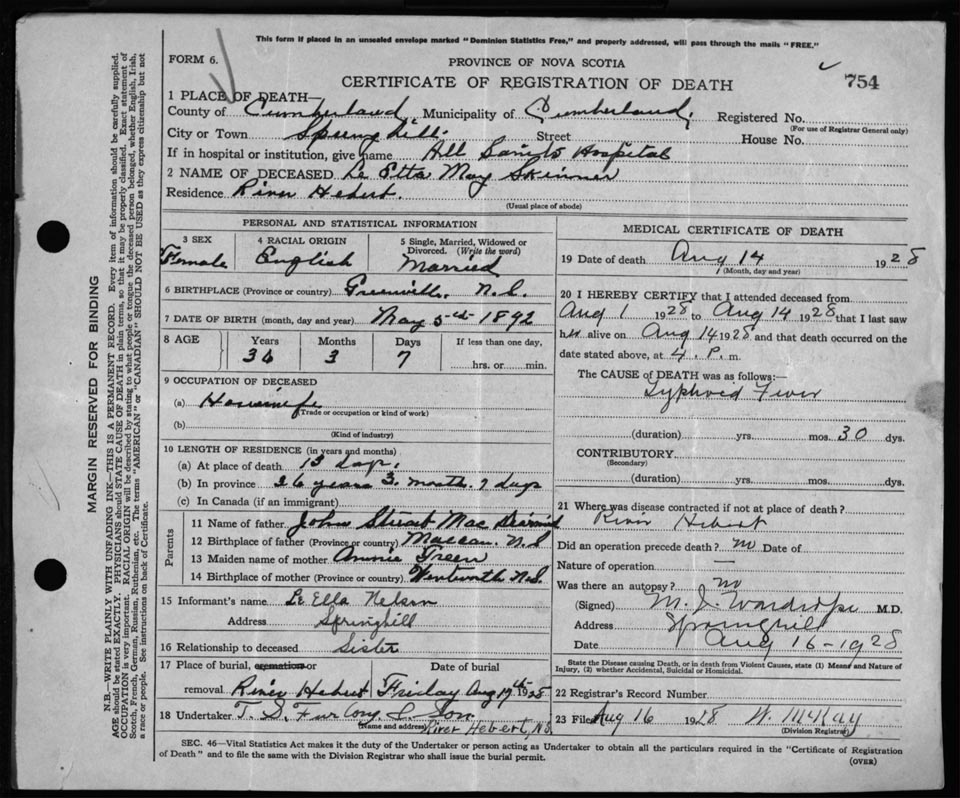 This form if placed in an unsealed envelope marked "Dominion Statistics Free," and properly addressed, will pass through the mails "FREE."
FORM 6.
PROVINCE OF NOVA SCOTIA
CERTIFICATE OF REGISTRATION OF DEATH
754
1 PLACE OF DEATH—
County of Cumberland, Municipality of Cumberland, Registered No.
(For use of Registrar General only)
City or Town Springhill Street House No.
If in hospital or institution, give name All Saints Hospital
2 NAME OF DECEASED Le Etta May Skinner
Residence River Hebert.
(Usual place of abode)
PERSONAL AND STATISTICAL INFORMATION
3 SEX Female
4 RACIAL ORIGIN English
5 Single, Married, Widowed or Divorced. (Write the word) Married
6 BIRTHPLACE (Province or country) Greenville, N.S.
7 DATE OF BIRTH (month, day and year) May 5th 1892
8 AGE Years 36 Months 3 Days 7 If less than one day, hrs. or min.
9 OCCUPATION OF DECEASED
(a) Housewife
(Trade or occupation or kind of work)
(b)
(Kind of industry)
10 LENGTH OF RESIDENCE (in years and months)
(a) At place of death 13 days.
(b) In province 36 years 3. month. 7 days
(c) In Canada (if an immigrant)
Parents
11 Name of father John Stuart Mac Diarmid
12 Birthplace of father (Province or country) Maccan. N.S
13 Maiden name of mother Annie Green
14 Birthplace of mother (Province or country) Wentworth N.S.
15 Informant's name Le Ella Nelson
Address Springhill
16 Relationship to deceased Sister
17 Place of burial, cremation or removal River Hebert
Date of burial Friday Aug 17th 1928
18 Undertaker T. S. Furlong & Son
(Name and address) River Hebert, N.S.
MEDICAL CERTIFICATE OF DEATH
19 Date of death Aug 14 1928
(Month, day and year)
20 I HEREBY CERTIFY that I attended deceased from
Aug 1 1928 to Aug 14 1928 that I last saw
her alive on Aug 14 1928 and that death occurred on the
date stated above, at 4. P. m.
The CAUSE of DEATH was as follows:—
Typhoid Fever
(duration) yrs. mos. 30 dys.
CONTRIBUTORY
(Secondary)
(duration) yrs. mos. dys.
21 Where was disease contracted if not at place of death?
River Hebert
Did an operation precede death? no Date of
Nature of operation —
Was there an autopsy? no
(Signed) M. J. Wardrope M.D.
Address Springhill
Date Aug 16 - 1928
State the Disease causing Death, or in death from Violent Causes, state (1) Means and Nature of Injury, (2) whether Accidental, Suicidal or Homicidal.
22 Registrar's Record Number
23 Filed Aug 16 1928 W. McKay
(Division Registrar)
SEC. 46—Vital Statistics Act makes it the duty of the Undertaker or person acting as Undertaker to obtain all the particulars required in the "Certificate of Registration
of Death" and to file the same with the Division Registrar who shall issue the burial permit.
(OVER)
MARGIN RESERVED FOR BINDING
N.B.—WRITE PLAINLY WITH UNFADING INK—THIS IS A PERMANENT RECORD. Every item of information should be carefully supplied.
AGE should be stated EXACTLY. PHYSICIANS should STATE CAUSE OF DEATH in plain terms, so that it may be properly classified. Exact statement of
OCCUPATION is very important. RACIAL ORIGIN will be described by stating to what people or tongue the deceased person belonged, whether English, Irish,
Scotch, French, German, Russian, Ruthenian, etc. The terms "AMERICAN" or "CANADIAN" SHOULD NOT BE USED as they express citizenship but not
a race or people. See instructions on back of Certificate.